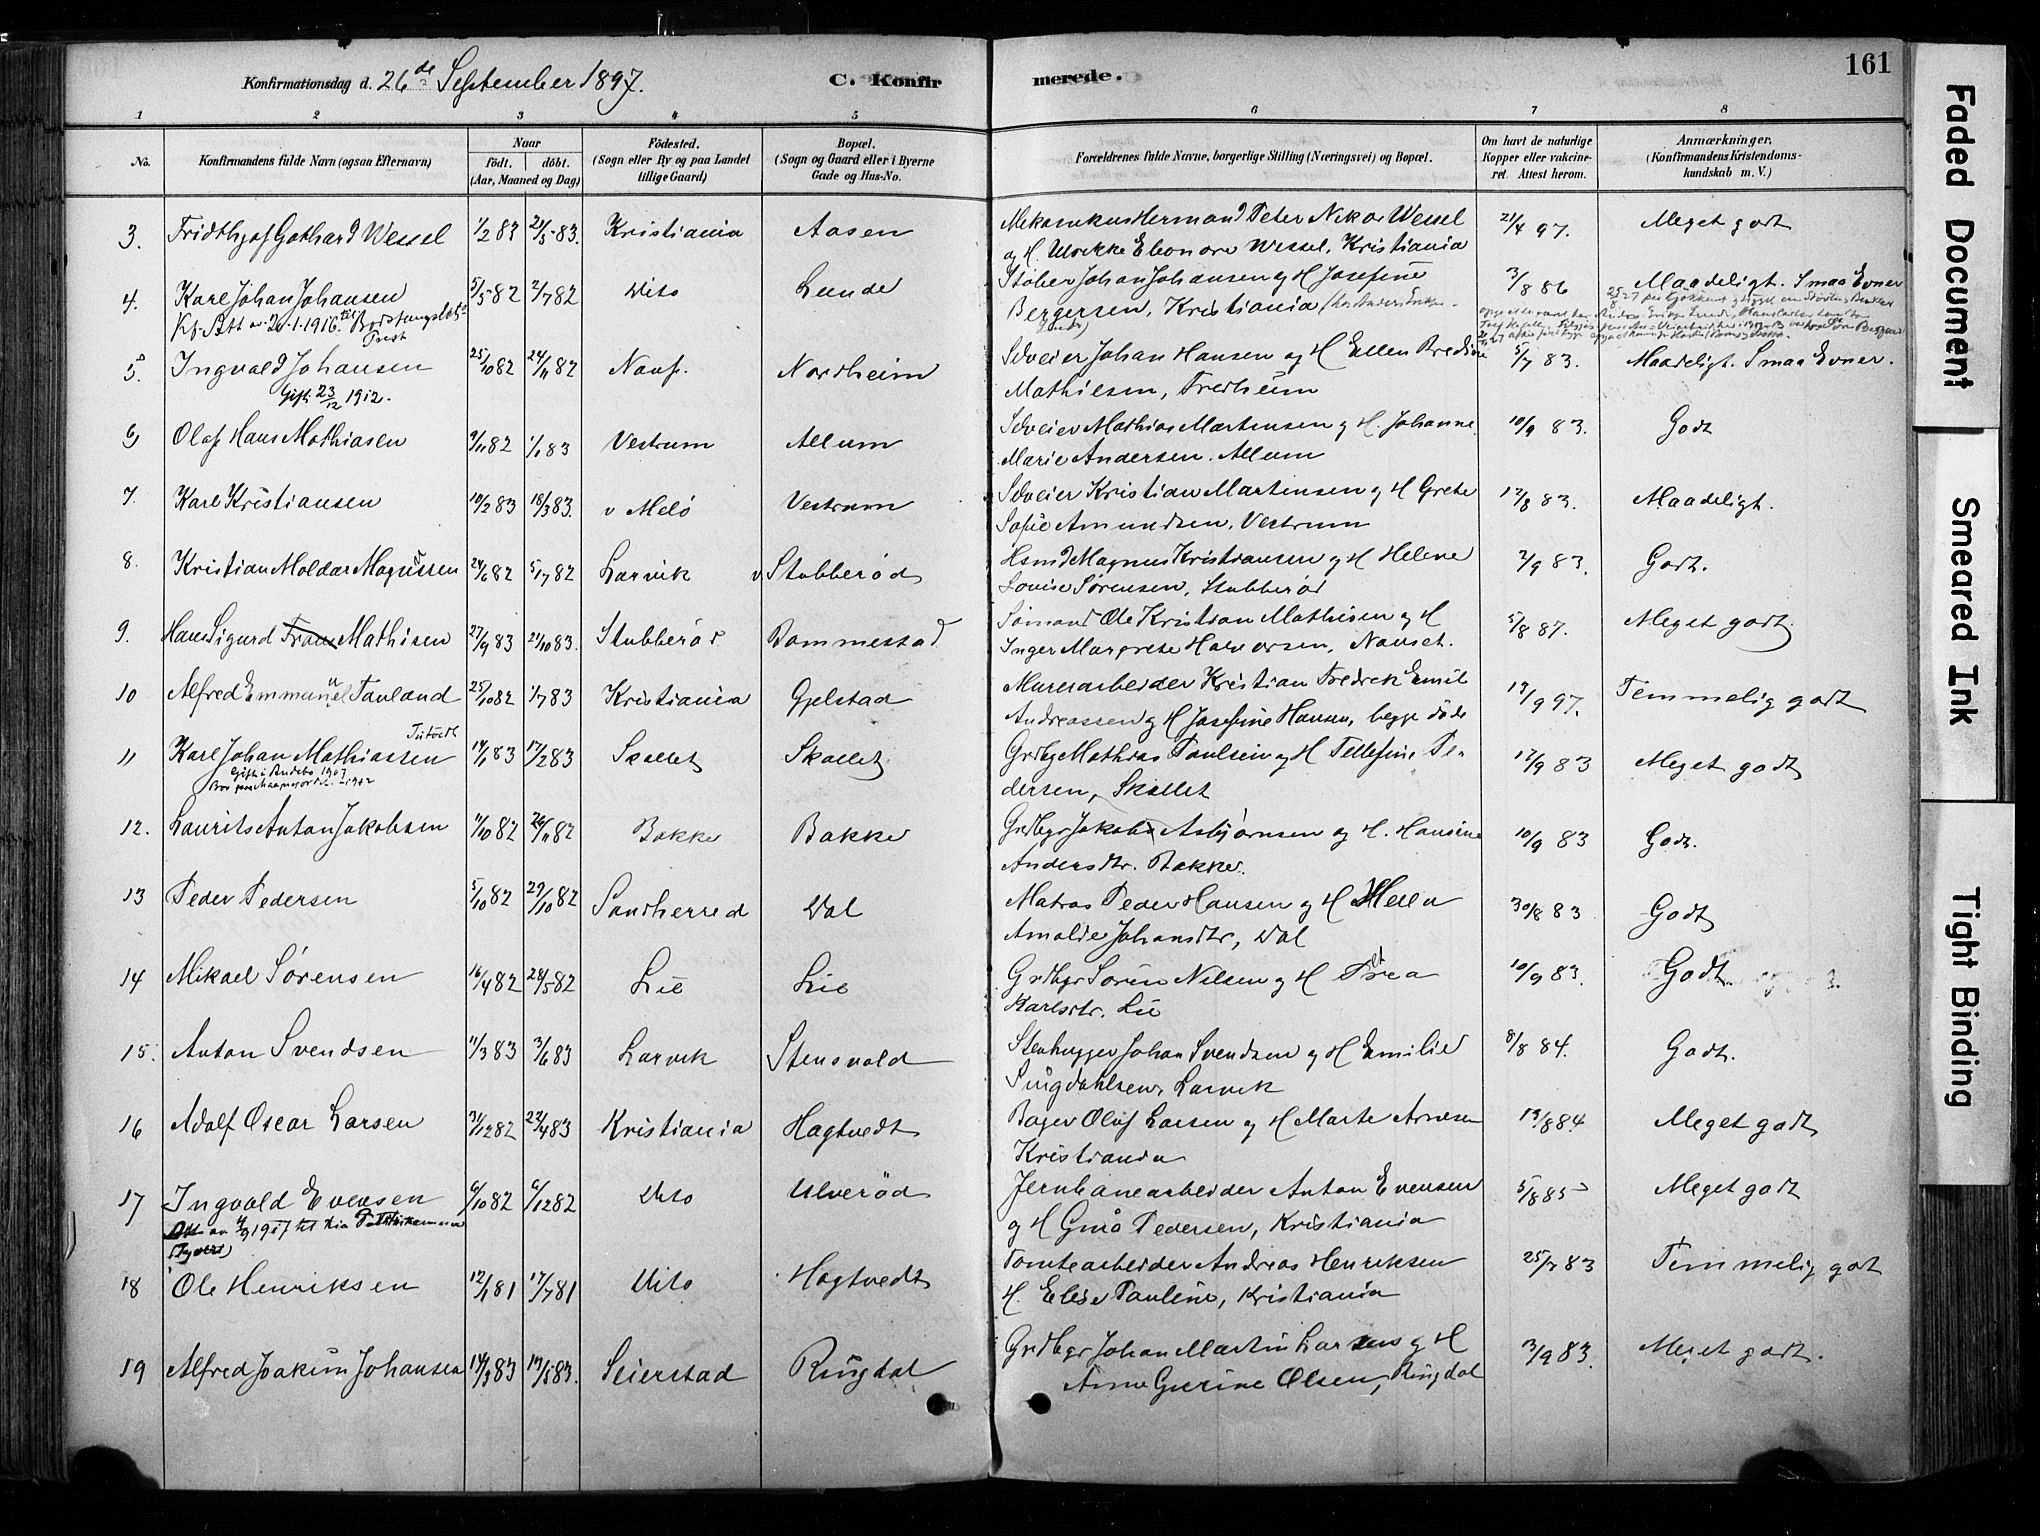 161
Konfirmationsdag d. 26de September 1897.
C. Konfirmerede.
1 2 3 4 5 6 7 8
No.
Konfirmandens fulde Navn (ogsaa Efternavn)
Naar
födt. döbt.
(Aar, Maaned og Dag)
Födested.
(Sogn eller By og paa Landet
tillige Gaard)
Bopæl.
(Sogn og Gaard eller i Byerne
Gade og Hus-No.
Forældrenes fulde Navne, borgerlige Stilling (Næringsvei) og Bopæl.
Om havt de naturlige
Kopper eller vakcine-
ret. Attest herom.
Anmærkninger.
(Konfirmandens Kristendoms-
kundskab m. V.)
3. Fridthjof Gothard Wessel 1/2 83 21/5 83. Kristiania Aasen Mekanikus Herman Peter Wessel 21/4 97. Meget godt
og H. Ulrikke Eleonore Wessel, Kristiania
4. Karl Johan Johansen 5/5 82 2/7 82 Dito Lunde Støber Johan Johansen og H Josefine 3/8 86 Maadeligt. Smaa Evner
Bergersen, Kristiania
5. Ingvald Johansen 25/10 82 24/11 82 Nordheim Selveier Johan Hansen og H Ellen Bredine 5/7 83. Maadeligt. Smaa Evner.
Gift 23/12 1912.
Mathiesen, Fredheim
6 Olaf Hans Mathiasen 9/11 82 1/1 83 Vestrum Allum Selveier Mathias Martinsen og H. Johanne 10/9 83. Godt
Marie Andersen. Allum
7. Karl Kristiansen 10/2 83 18/3 83. v Melö Vestrum Selveier Kristian Martinsen og H Grete 17/8 83. Maadeligt.
Sofie Amundsen, Vestrum
8. Kristian Moldar Magnussen 24/6 82 5/17 82 Larvik v Stubberød Hsmd Magnus Kristiansen og H Helene 2/9 83. Godt.
Louise Sørensen, Stubberød
9. Hans Sigurd Mathisen 27/9 83 21/10 83. Stubberød Bommestad Sømand Ole Kristian Mathisen og H 5/8 87. Meget godt
Inger Margrete Halvorsen, Nauset.
10 Alfred Emmanuel Tauland 25/10 82 1/7 83 Kristiania Gjelstad Murerarbeider Kristian Fredrek Emil 17/9 97. Temmelig godt
Andreassen og H Josefine Hansen, begge döde
11 Karl Johan Mathiassen 14/1 83 17/2 83 Skallet Skallet Grdbg Mathias Paulsen og H Tellefine Pe- 17/9 83 Meget godt
Gift i Andebo 1907
dersen, Skallet
12. Laurits Anton Jakobsen 11/10 82 26/11 82 Bakke Bakke Grdbgr Jakob Asbjørnsen og H. Hansine 10/9 83 Godt.
Andersdtr. Bakke.
13 Peder Pedersen 5/10 82 29/10 82 Sandherred Dal Matros Peder Hansen og H Helen 30/8 83 Godt
Amalie Johansdtr, Dal
14 Mikael Sørensen 16/4 82 28/5 82 Lie Lie Grdbgr Sören Nilsen og H 10/9 83. Godt.
Karlsdtr. Lie
15. Anton Svendsen 11/3 83 3/6 83 Larvik Stensvold Stenhugger Johan Svendsen og H Emilie 8/8 84. Godt.
Larvik
16 Adolf Oscar Larsen 31/12 82 22/4 83 Kristiania Hagtvedt Bager Oluf Larsen og H Marte Arnesen 19/8 84 Meget godt
Kristiania
17 Ingvald Evensen 6/10 82 6/12 82 Dito Ulverød Jernbanearbeider Anton Evensen 5/8 85 Meget godt
og H Gina Pedersen, Kristiania
18 Ole Henriksen 12/1 81 17/7 81 Dito Hagtvedt Tomtearbeider Andreas Henriksen 25/7 83 Temmelig got
H. Elise Pauline, Kristiania
19 Alfred Joakim Johansen 14/3 83 14/5 83. Seierstad Ringdal Grdbgr Johan Martin Larsens og H 3/9 83. Meget godt.
Anne Gurine Olsen, Ringdal
Faded Document
Smeared Ink
Tight Binding